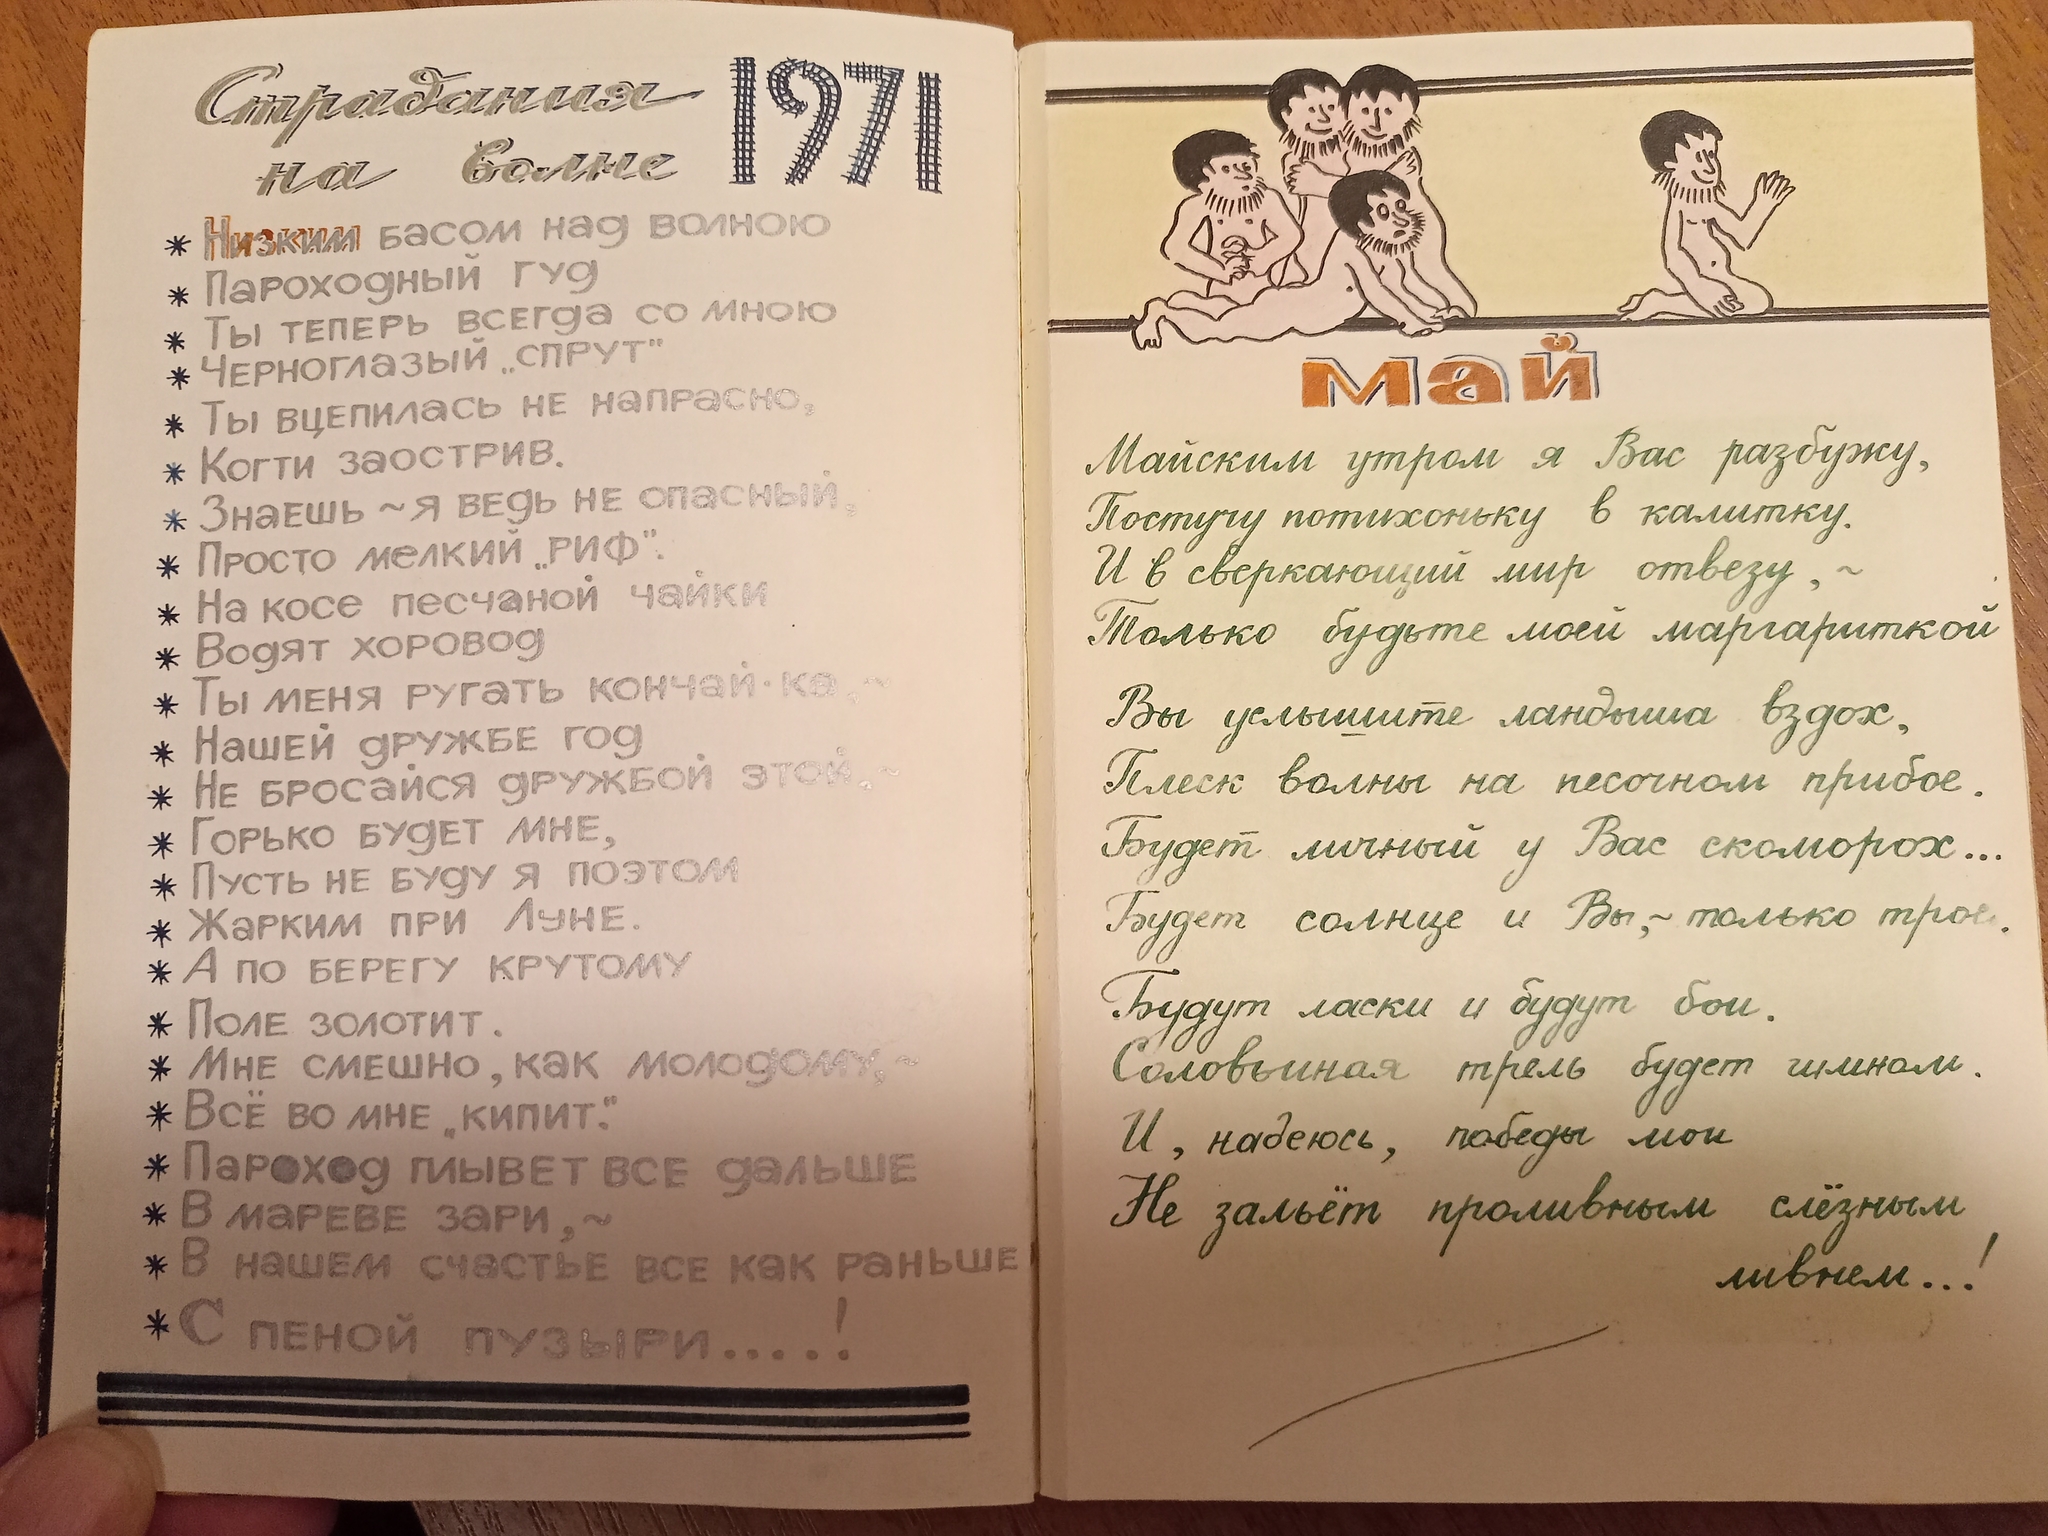 Страдания
на волне
1971
* Низким басом над волною
* Пароходный гуд
* Ты теперь всегда со мною
* Черноглазый „спрут"
* Ты вцепилась не напрасно,
* Когти заострив.
* Знаешь ~ я ведь не опасный,
* Просто мелкий „риф".
* На косе песчаной чайки
* Водят хоровод
* Ты меня ругать кончай-ка,~
* Нашей дружбе год
* Не бросайся дружбой этой,~
* Горько будет мне,
* Пусть не буду я поэтом
* Жарким при Луне.
* А по берегу крутому
* Поле золотит.
* Мне смешно, как молодому,~
* Всё во мне „кипит."
* Пароход плывет все дальше
* В мареве зари,~
* В нашем счастье все как раньше
* С пеной пузыри.....!
май
Майским утром я Вас разбужу,
Постучу потихоньку в калитку.
И в сверкающий мир отвезу,~
Только будьте моей маргариткой
Вы услышите ландыша вздох,
Плеск волны на песочном прибое.
Будет личный у Вас скоморох...
Будет солнце и Вы,~ только трое.
Будут ласки и будут бои.
Соловьиная трель будет гимном.
И, надеюсь, победы мои
Не зальёт проливным слёзным
ливнем...!